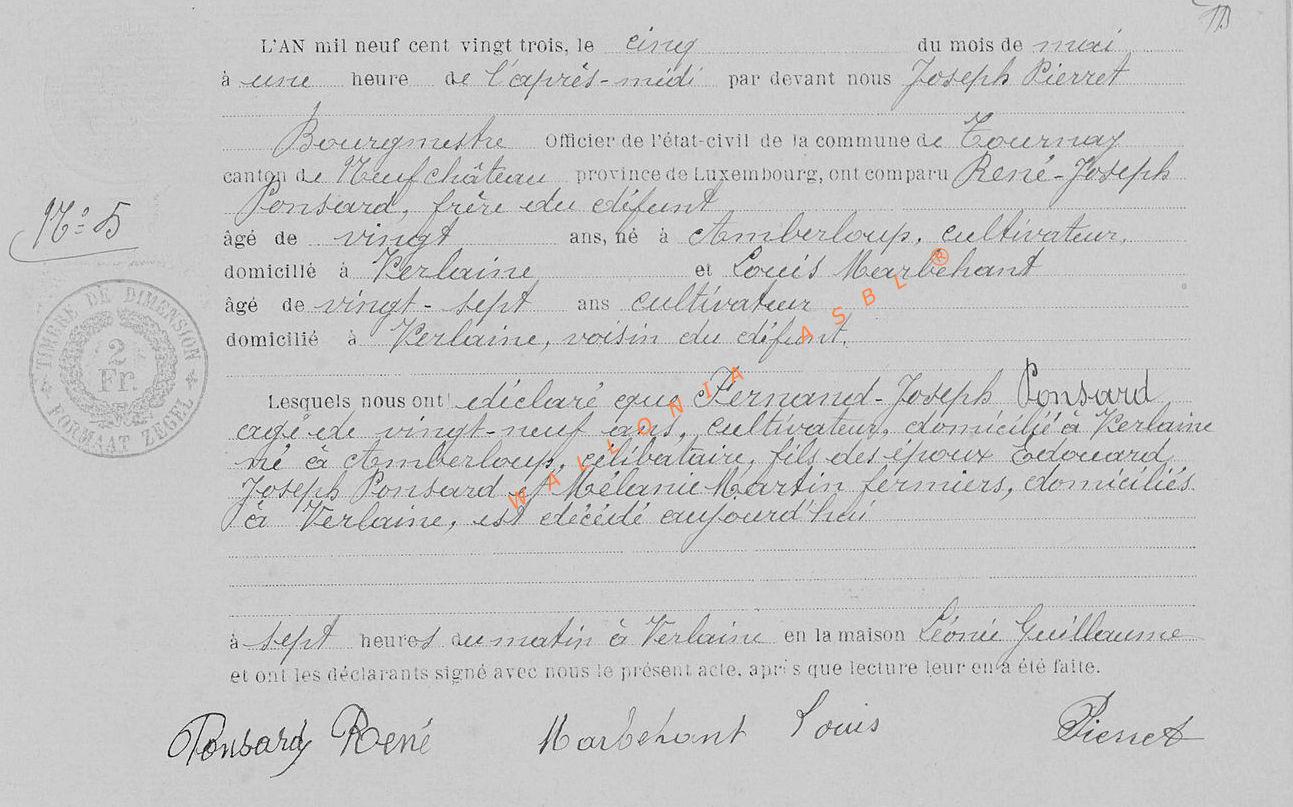 L'AN mil neuf cent vingt trois, le cinq du mois de mai
à une heure de l'après-midi par devant nous Joseph Pierret
Bourgmestre Officier de l'état-civil de la commune de Tournay
canton de Neufchâteau province de Luxembourg, ont comparu René-Joseph
Ponsard, frère du défunt
N° 5
âgé de vingt ans, né à Amberloup, cultivateur,
domicilié à Verlaine et Louis Marbehant
âgé de vingt-sept ans cultivateur
domicilié à Verlaine, voisin du défunt.
TIMBRE DE DIMENSION
2
Fr.
FORMAAT ZEGEL
WALLONIA ASBL ®
Lesquels nous ont déclaré que Fernand-Joseph Ponsard
agé de vingt-neuf ans, cultivateur, domicilié à Verlaine
né à Amberloup, célibataire, fils des époux Edouard
Joseph Ponsard et Mélanie Martin fermiers, domiciliés
à Verlaine, est décédé aujourd'hui
à sept heures du matin à Verlaine en la maison Léonie Guillaume
et ont les déclarants signé avec nous le présent acte, après que lecture leur en a été faite.
Ponsard René Marbehant Louis Pierret